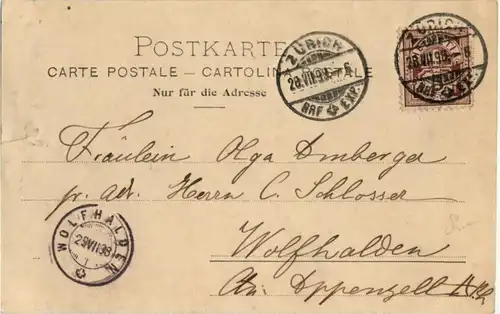 POSTKARTE
CARTE POSTALE — CARTOLINA POSTALE
Nur für die Adresse
ZÜRICH
28.VII.98.-6
BRF EXP.
ZÜRICH
28.VII.98.-6
BRF EXP.
Fräulein Olga Amberger
pr. adr. Herrn C. Schlosser
Wolfhalden
Ctn. Appenzell
WOLFHALDEN
29.VII.98